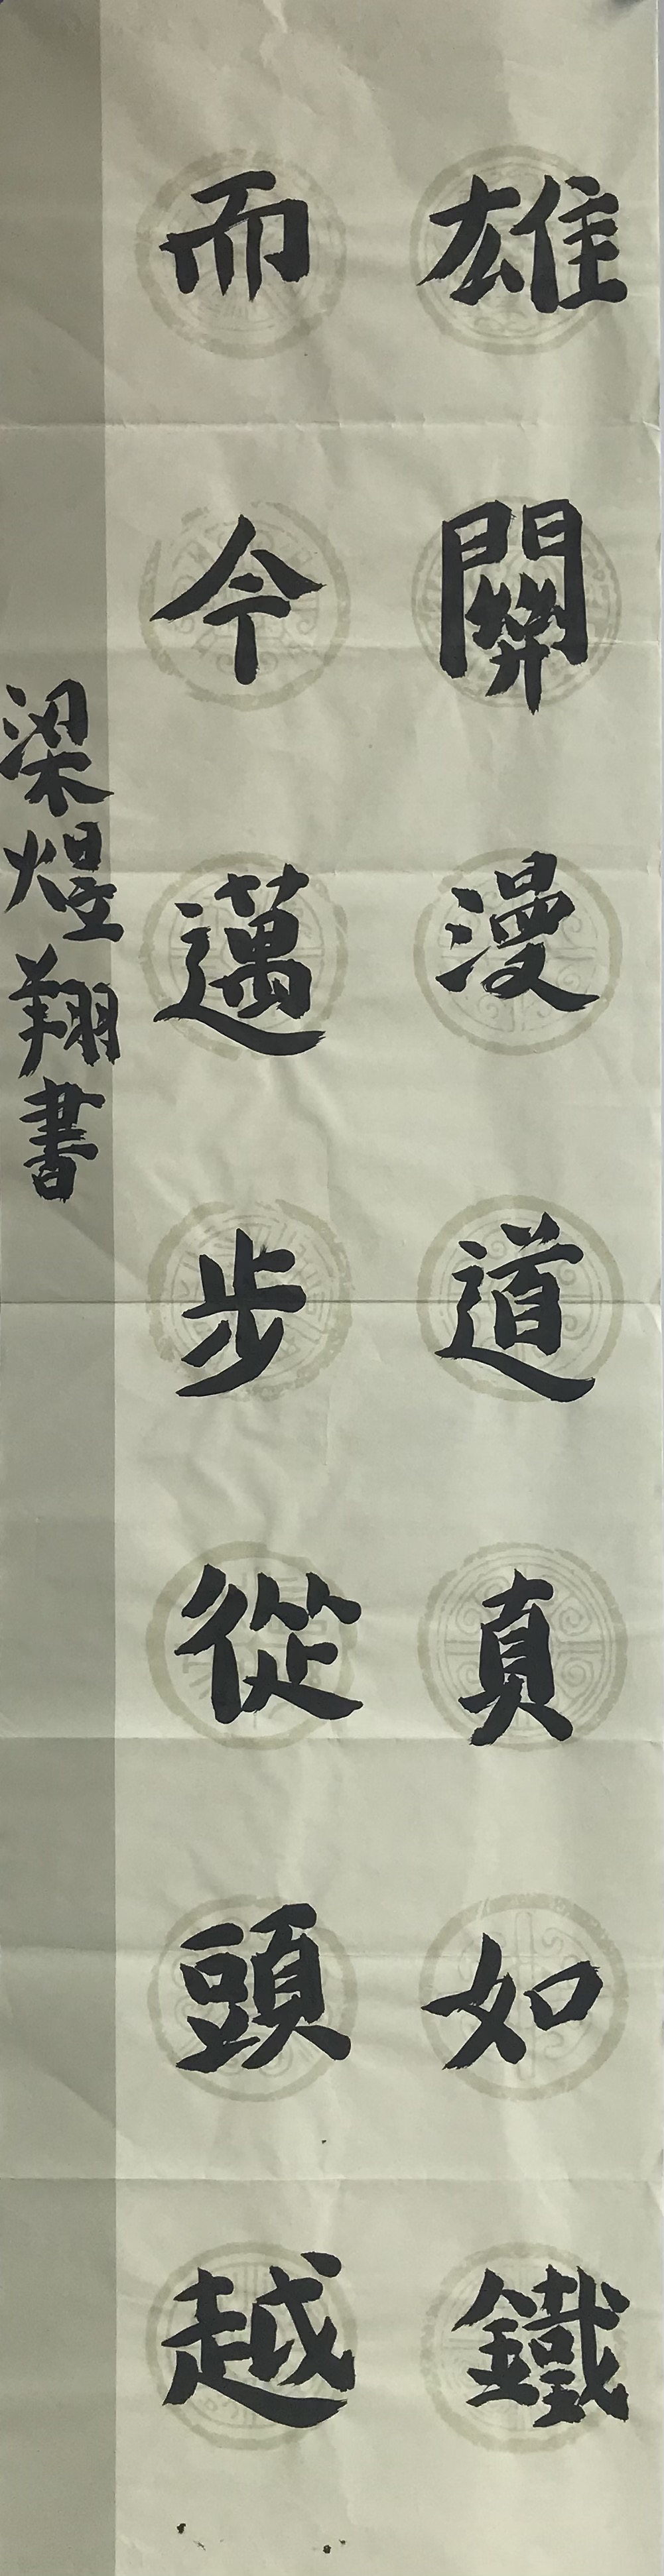 雄關漫道真如鐵
而今邁步從頭越
梁煜翔書